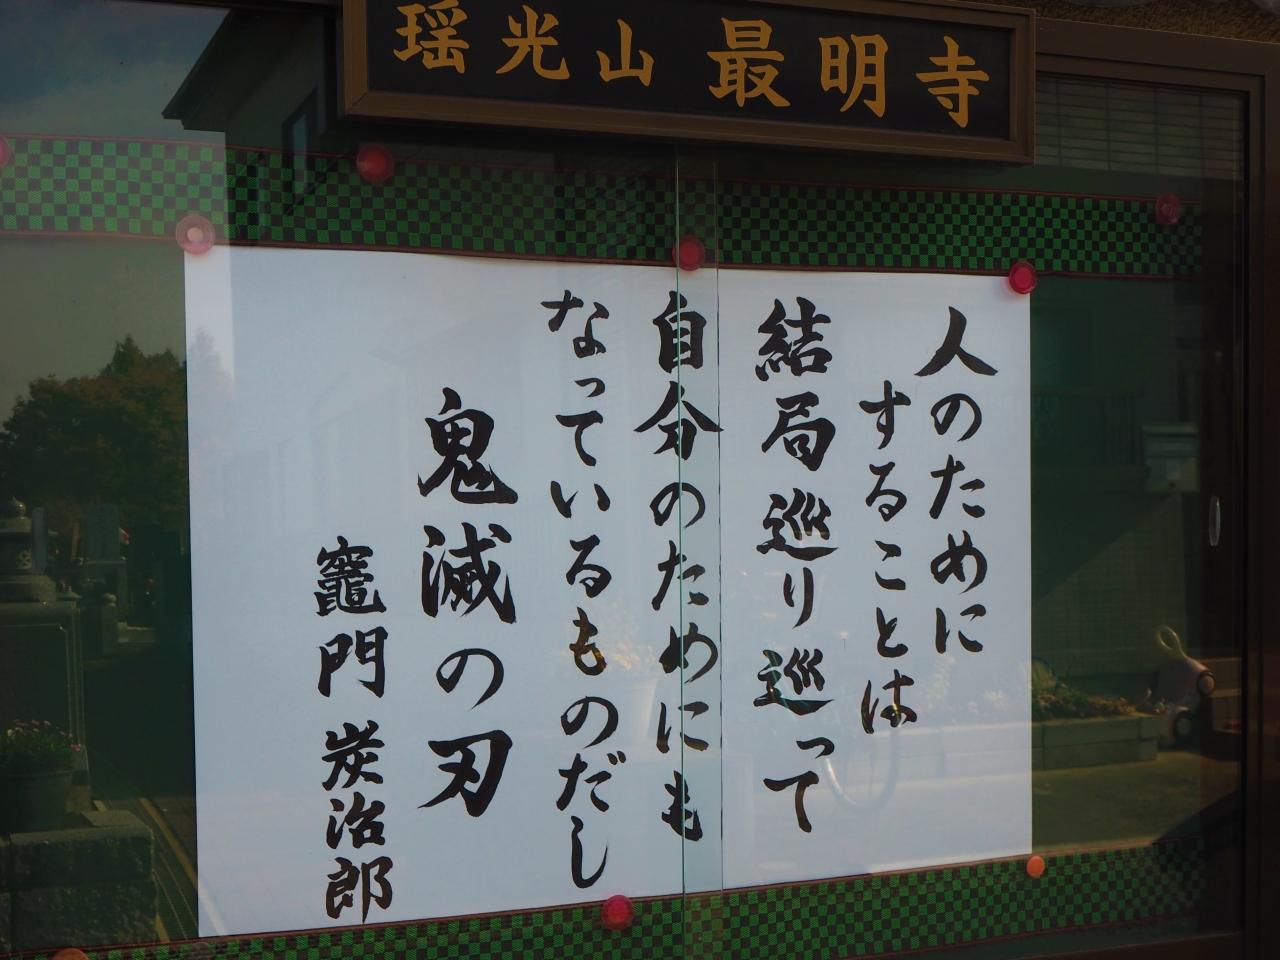 瑶光山 最明寺
人のために
することは
結局巡り巡って
自分のためにも
なっているものだし
鬼滅の刃
竈門 炭治郎